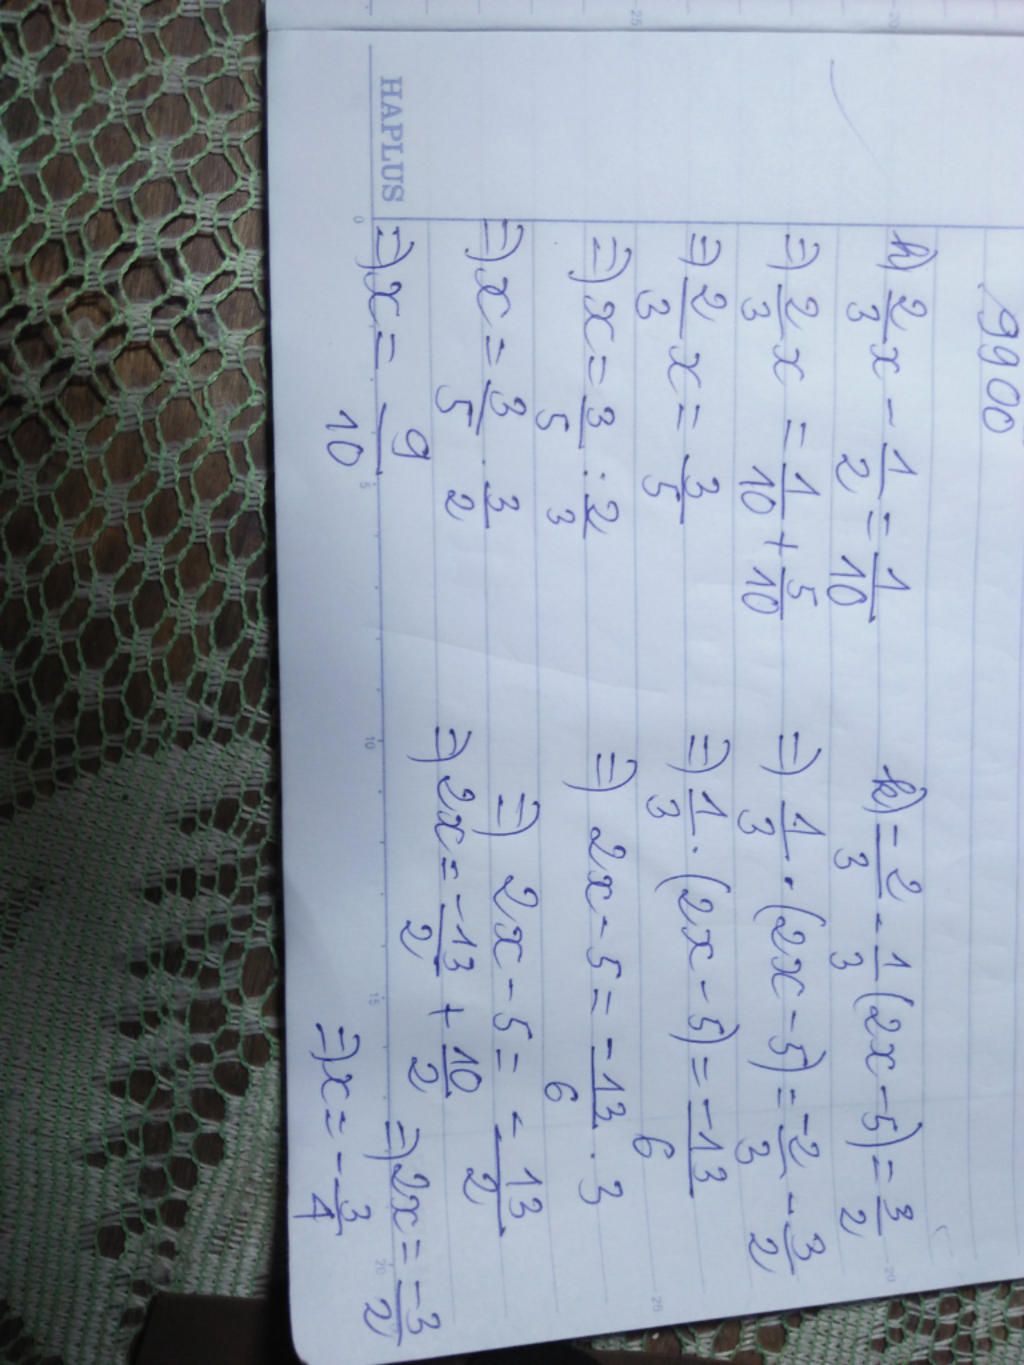 9900
h) 2/3 x - 1/2 = 1/10
=) 2/3 x = 1/10 + 5/10
=) 2/3 x = 3/5
=) x = 3/5 : 2/3
=) x = 3/5 . 3/2
=) x = 9/10
k) -2/3 - 1/3 (2x - 5) = 3/2
=) 1/3 . (2x - 5) = -2/3 - 3/2
=) 1/3 . (2x - 5) = -13/6
=) 2x - 5 = -13/6 . 3
=) 2x - 5 = -13/2
=) 2x = -13/2 + 10/2
=) 2x = -3/2
=) x = -3/4
HAPLUS
0 5 10 15 20
25 20
25 20